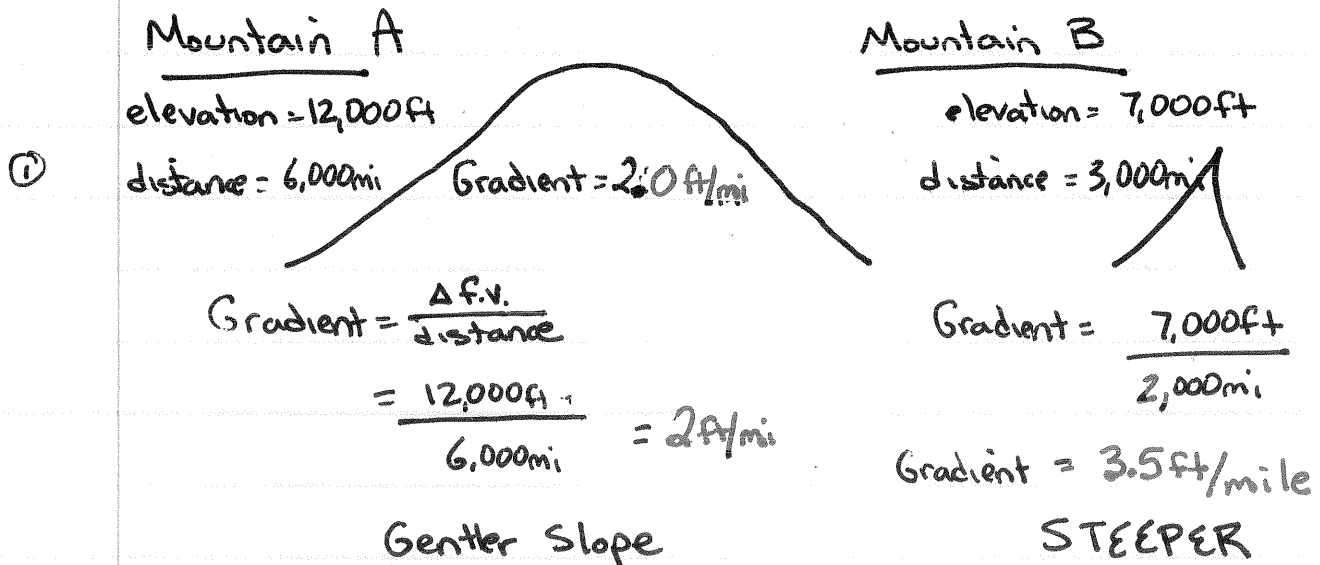 Mountain A
elevation = 12,000ft
① distance = 6,000mi
Gradient = 2.0 ft/mi
Gradient = Δ f.v. / distance
= 12,000ft / 6,000mi = 2ft/mi
Gentler Slope
Mountain B
elevation = 7,000ft
distance = 3,000mi
Gradient = 7,000ft / 2,000mi
Gradient = 3.5 ft/mile
STEEPER